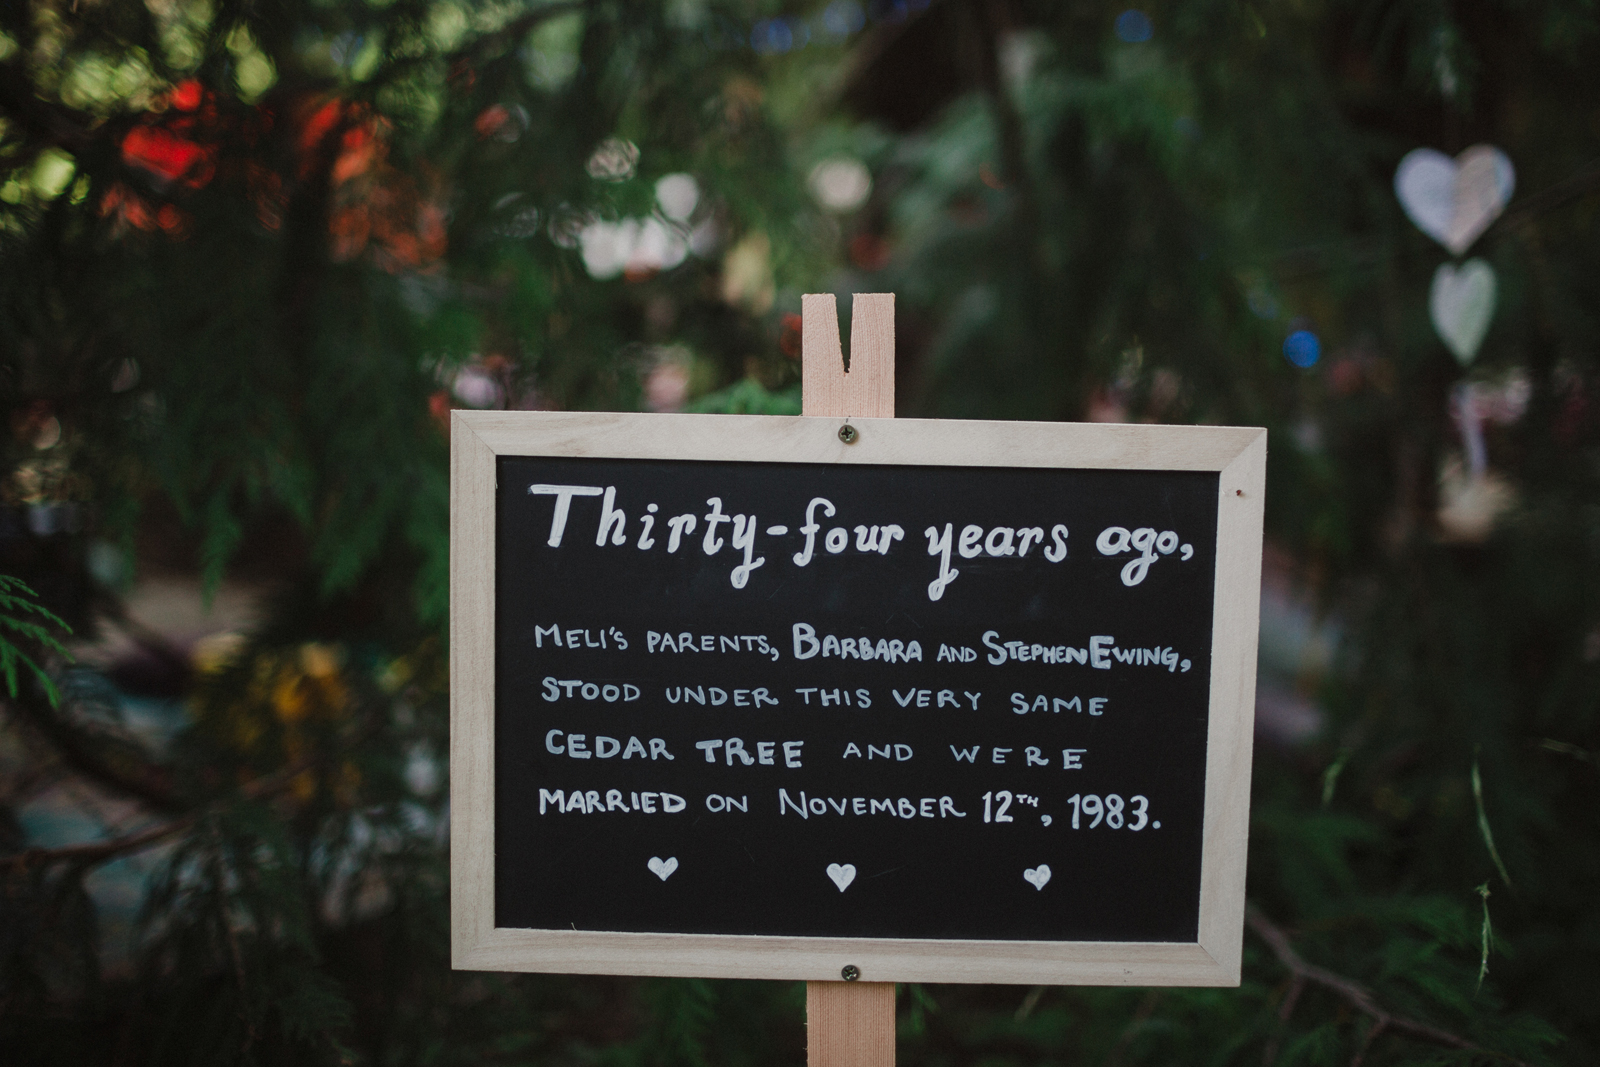 Thirty-four years ago,
MELI'S PARENTS, BARBARA AND STEPHEN EWING,
STOOD UNDER THIS VERY SAME
CEDAR TREE AND WERE
MARRIED ON NOVEMBER 12TH, 1983.